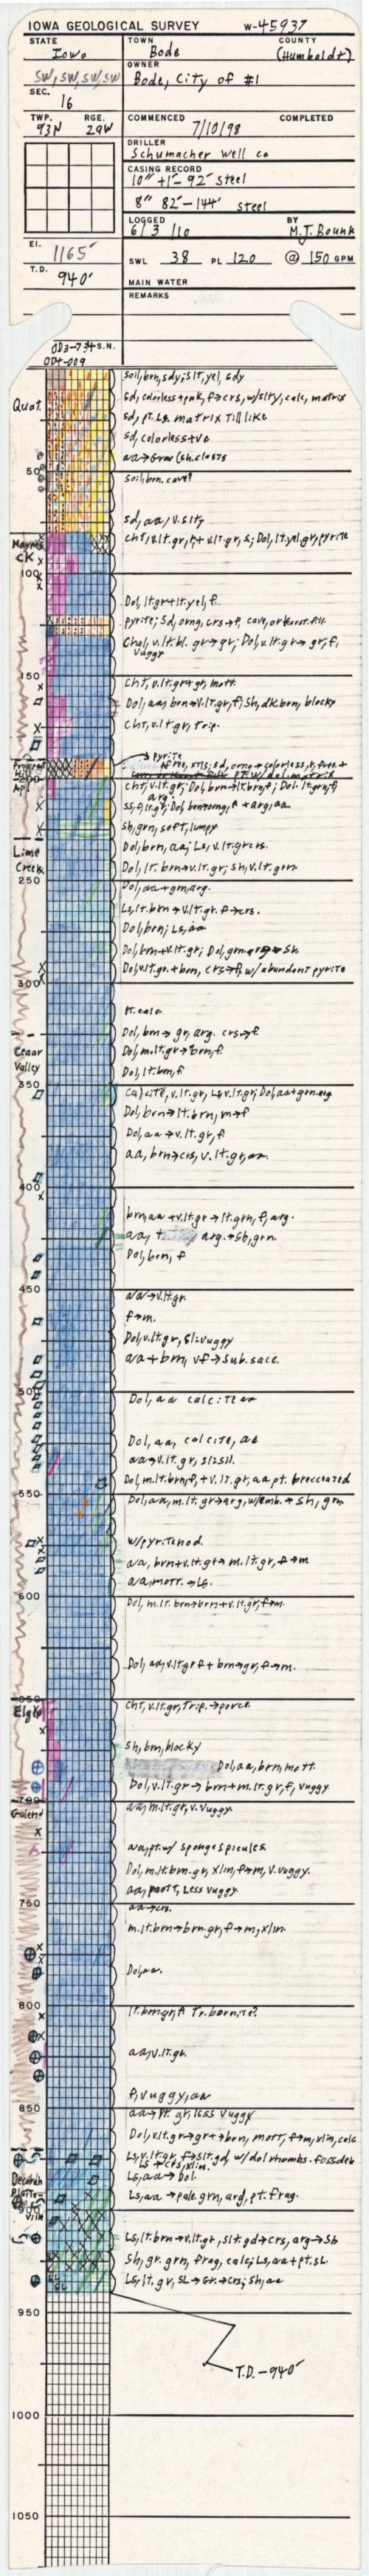 IOWA GEOLOGICAL SURVEY W-45937
STATE
Iowa
TOWN
Bode
COUNTY
(Humboldt)
SW, SW, SW, SW
OWNER
Bode, City of #1
SEC.
16
TWP.
93N
RGE.
29W
COMMENCED
7/10/98
COMPLETED
DRILLER
Schumacher Well Co
CASING RECORD
10" +1'- 92' steel
8" 82'-144' steel
LOGGED
6/3/10
BY
M.J. Bounk
El.
1165'
T.D.
940'
SWL 38 PL 120 @ 150 GPM
MAIN WATER
REMARKS
S.N.
Quot.
soil, brn, sdy; slt, yel, sdy
sd, colorless+pnk, f→crs, w/slty, calc, matrix
sd, pt. Ls. matrix Till like
sd, colorless+ve
aa→Grav (sh. clasts
50
soil, brn. cave?
sd, aa/v. slty
Maynes
CK
cht, v.lt.gr, + v.lt.gr, s; Dol, lt.yel.gr, pyrite
100
Dol, lt.gr+lt.yel, f.
pyrite; Sd, orng, crs→f, cave, or karst fill
Chal, v.lt.bl. gr→gr; Dol, v.lt.gr→gr, f,
vuggy
150
Cht, v.lt.gr+gr, mott.
Dol, aa, brn→v.lt.gr, f; sh, dk.brn, blocky
Cht, v.lt.gr, Trip.
→pyrite
200
Ap
cht, v.lt.gr; Dol, brn→lt.brn, f; Dol. lt.grn, f,
arg.
ss, f, lt.gr; Dol, brn→orng, f + arg, aa
sh, grn, soft, lumpy
Lime
Creek
Dol, brn, aa; Ls, v.lt.gr crs.
Dol, lt. brn→v.lt.gr; sh, v.lt.grn
250
Dol, aa+grn, arg.
Ls, lt.brn→v.lt.gr. f→crs.
Dol, brn; Ls, aa
Dol, brn+v.lt.gr; Dol, grn arg→sh
Dol, v.lt.gr+brn, crs→f, w/abundant pyrite
300
pt. calc
Dol, brn→gr, arg. crs→f
Cedar
Valley
Dol, m.lt.gr→brn, f.
Dol, lt.brn, f
350
Calcite, v.lt.gr, Ls v.lt.gr; Dol, aa+grn arg
Dol, brn→lt.brn, m→f
Dol, aa→v.lt.gr, f
aa, brn→crs, v.lt.gr, aa.
400
brn, aa+v.lt.gr→lt.grn, f, arg.
aa, + arg.→sh, grn.
Dol, brn, f
450
aa→v.lt.gr.
f→m.
Dol, v.lt.gr, sli vuggy
aa+brn, vf→sub.sacc.
500
Dol, aa calcite aa
Dol, aa, calcite, aa
aa→v.lt.gr, sl.sil.
Dol, m.lt.brn, f, +v.lt.gr, aa pt. brecciated
550
Dol, aa, m.lt.gr→arg, w/emb. + sh, grn
w/pyrite nod.
aa, brn+v.lt.gr→m.lt.gr, f→m
aa, mott.→Ls.
600
Dol, m.lt. brn→brn+v.lt.gr, f→m.
Dol, aa, v.lt.gr f + brn→gr, f→m.
650
Elgin
cht, v.lt.gr, Trip.→porce.
sh, brn, blocky
Dol, aa, brn, mott.
Dol, v.lt.gr→brn+m.lt.gr, f, vuggy
700
Galena
aa, m.lt.gr, v. vuggy.
aa, pt. w/ sponge spicules
Dol, m.lt.brn.gr, xlin, f→m, v. vuggy.
aa, mott, Less vuggy
750
aa→crs.
m.lt.brn→brn.gr, f→m, xlin.
Dol, aa.
800
lt.brn gr, f Tr. bornite?
aa, v.lt.gr.
f, vuggy, aa
850
aa→lt. gr, less vuggy
Dol, v.lt.gr→gr+→brn, mott, f→m, xlin, calc
Ls, v.lt.gr, f→slt.gd, w/dol rhombs. foss deb
Ls→crs, xlin.
Decorah
Ls, aa→Dol.
Platte-
ville
900
Ls, aa→pale grn, arg, pt. frag.
Ls, lt.brn→v.lt.gr, slt.gd→crs, arg→Sh
Sh, gr. grn, frag, calc; Ls, aa+pt. SL
Ls, lt. gr, SL→Gr.→crs; sh, aa
SL
SL
950
T.D.-940'
1000
1050